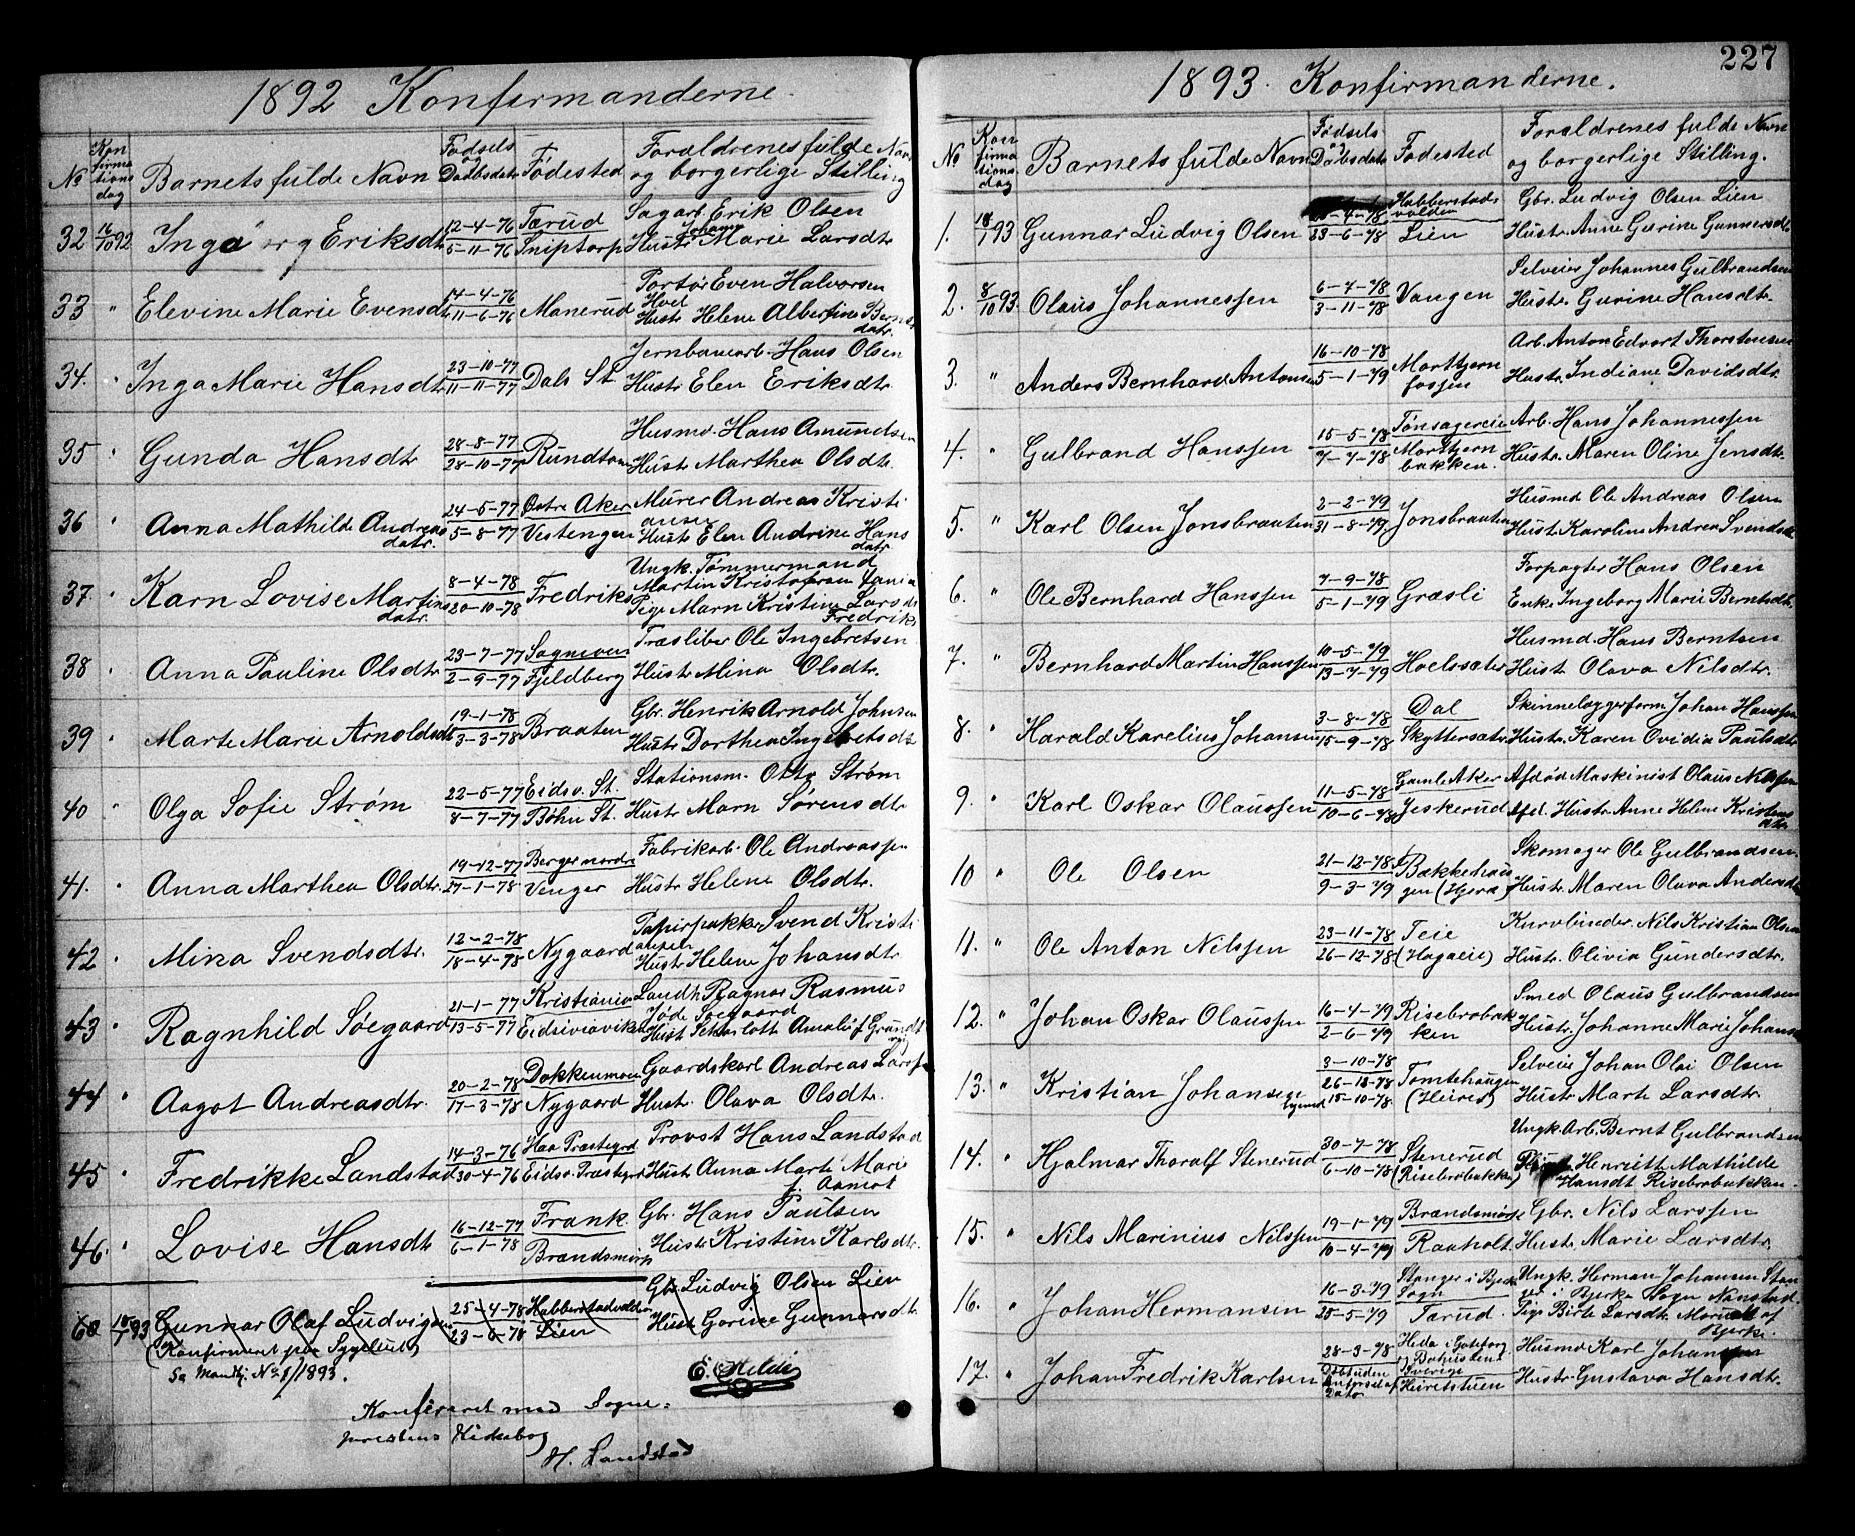 227
1892 Konfirmanderne.
No Konfirmationsdag Barnets fulde Navn Fødsels og Daabsdato Fødested Forældrenes fulde Navn og borgerlige Stilling
32 16/10 92 Ingeborg Eriksdtr 12-4-76 Tærud Sagarb. Erik Olsen
5-11-76 Sniptorp Hustr Johanne Marie Larsdtr
33 " Elevine Marie Evensdtr 14-4-76 Manerud Portør Even Halvorsen Hoel
11-6-76 Hustr Helene Albertine Bernts datr.
34. " Inga Marie Hansdtr 23-10-77 Dals St. Jernbanearb. Hans Olsen
11-11-77 Hustr Elen Eriksdtr.
35 " Gunda Hansdtr 28-8-77 Rundtom Husmd. Hans Amundsen
28-10-77 Hustr Marthea Olsdtr.
36 " Anna Mathilde Andreas datr. 24-5-77 Østre Aker Murer Andreas Kristiansen
5-8-77 Vestengen Hustr Elen Andrine Hans datr.
37. " Karn Lovise Martins datr. 8-4-78 Fredriks Ungk. Tømmermand Martin Kristofersen
20-10-78 Pige Marn Kristine Larsdt Fredriks
38 " Anna Pauline Olsdtr 23-7-77 Sagneven Træsliber Ole Ingebretsen
2-9-77 Fjeldberg Hustr Mina Olsdtr.
39 " Marte Marie Arnoldsdtr 19-1-78 Braaten Gbr. Henrik Arnold Johnsen
3-3-78 Hustr Dorthea Ingebretsdtr
40 " Olga Sofie Strøm 22-5-77 Eidsv. St. Stationsm. Otto Strøm
8-7-77 Bøhn St. Hustr Marn Sørensdtr
41. " Anna Marthea Olsdtr. 19-12-77 Berger nordre Fabrikarb. Ole Andreassen
27-1-78 Venger Hustr Helene Olsdtr.
42 " Mina Svendsdtr. 12-2-78 Nygaard Papirpakker Svend Kristiansen
18-4-78 Hustr Helene Johansdtr
43 " Ragnhild Søegaard 21-1-77 Kristiania Landh. Ragnar Rasmus Jøde Søegaard
13-5-77 Eidsiviaviken Hust Scharloth Amalie f. Grundt
44 " Aagot Andreasdtr. 20-2-78 Dokkenmoen Gaardskarl Andreas Larsen
17-3-78 Nygaard Hustr. Olava Olsdtr.
45 " Fredrikke Landstad 14-3-76 Haa Præstegrd Provst Hans Landstad
30-4-76 Eidsv. Præstegr Hustr Anna Marte Marie f. Aamot
46. " Lovise Hansdtr 16-12-77 Frank Gbr. Hans Paulsen
6-1-78 Brandsmörp Hustr Kristine Karlsdtr.
60 18/7 93 Gunnar Olaf Ludvigsen 25-4-78 Habberstadvolden Gbr Ludvig Olsen Lien
(Konfirmeret paa Sygeleiet) 23-6-78 Lien Hustr Gorine Gunnarsdtr.
Se Mandkj. No 1/1893.
E. Hilde
Konfereret med Sogne-
præstens Kirkebog
H. Landstad
1893. Konfirmanderne.
No Konfirmationsdag Barnets fulde Navn Fødsels og Daabsdato Fødested Forældrenes fulde Navn og borgerlige Stilling.
1. 18/7 93 Gunnar Ludvig Olsen 25-4-78 Habberstadvolden Gbr. Ludvig Olsen Lien
23-6-78 Lien Hustr. Anne Gurine Gunnersdtr
2. 8/10 93. Olaus Johannessen 6-4-78 Vangen Selveier Johannes Gulbrandsen
3-11-78 Hustr. Gurine Hansdtr.
3. " Anders Bernhard Antonsen 16-10-78 Mortkjernfossen Arb. Anton Edvart Thorstensen
5-1-79 Hustr. Indiane Davidsdtr.
4. " Gulbrand Hanssen 15-5-78 Tønsagereie Arb. Hans Johannessen
7-7-78 Mortkjernbakken. Hustr. Maren Oline Jensdtr.
5. " Karl Olsen Jonsbraaten 2-2-79 Jonsbraaten Husmd Ole Andreas Olsen
31-8-79 Hustr. Karoline Andrea Svendsdtr
6. " Ole Bernhard Hanssen 7-9-78 Græsli Forpagter Hans Olsen
5-1-79 Enke Ingeborg Marie Berntsdtr.
7. " Bernhard Martin Hanssen 10-5-79 Hoelssæter Husmd Hans Berntsen
13-7-79 Hustr Olava Nilsdtr.
8. " Harald Karelius Johansen 3-8-78 Dal Skinnelæggerform Johan Hanssen
15-9-78 Skyttersæter Hustr. Karen Ovidia Paulsdtr
9. " Karl Oskar Olaussen 11-5-78 Gamle Aker Afdød Maskinist Olaus Nilssen
10-6-78 Jeskerud Afd. Hustr Anne Helene Kristensdtr
10 " Ole Olsen 21-12-78 Bækkehaugen (Hjera) Skomager Ole Gulbrandsen.
9-3-79 Hustr. Maren Olava Andersdtr
11. " Ole Anton Nilssen 23-11-78 Teie Kurvbinder. Nils Kristian Olsen
26-12-78 (Hagaeie) Hustr. Olivia Gundersdtr.
12. " Johan Oskar Olaussen 16-4-79 Risebrobakken Smed Olaus Gulbrandsen
2-6-79 Hustr. Johanne Marie Johansdtr
13. " Kristian Johansen 3-10-78 Tomtehaugen Selveier Johan Olai Olsen
26-12-78 (Heirer) Hustr Marte Larsdtr.
15-10-78
14. " Hjalmar Thoralf Stenerud 30-7-78 Stenerud Ungk. Arb. Bernt Gulbrandsen
6-10-78 (Risebrobakken) Henriette Mathilde Hansdt Risebrobakken.
15. " Nils Marinius Nilssen 19-1-79 Brandsmörp Gbr. Nils Larssen
10-4-79 Raaholt Hustr. Marie Larsdtr.
16. " Johan Hermansen 16-3-79 Stanger i Bjerke Sogn Ungk. Herman Johansen Stanger i Bjerke Sogn Nanstad.
25-5-79 Tærud. Pige Birte Larsdtr. Morud af Bjerke.
17. " Johan Fredrik Karlsen 28-3-78 Heda i Gøteborg og Bohuslen Sverige Husmd Karl Johansen
Heiretstuen Hustr. Gustava Hansdtr.